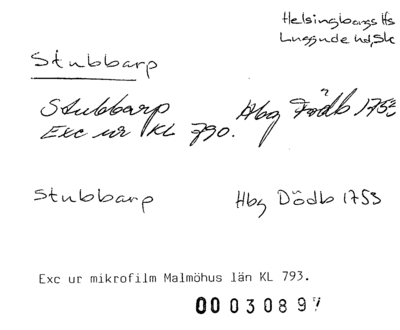 Helsingborgs Hfs
Luggude hd, Sk
Stubbarp
Stubbarp Hbg Födb 1753
?
Exc ur KL 790.
Stubbarp Hbg Dödb 1753
Exc ur mikrofilm Malmöhus län KL 793.
0003089